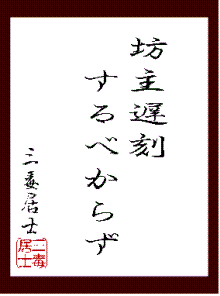 坊主遅刻
するべからず
三毒居士
三毒
居士